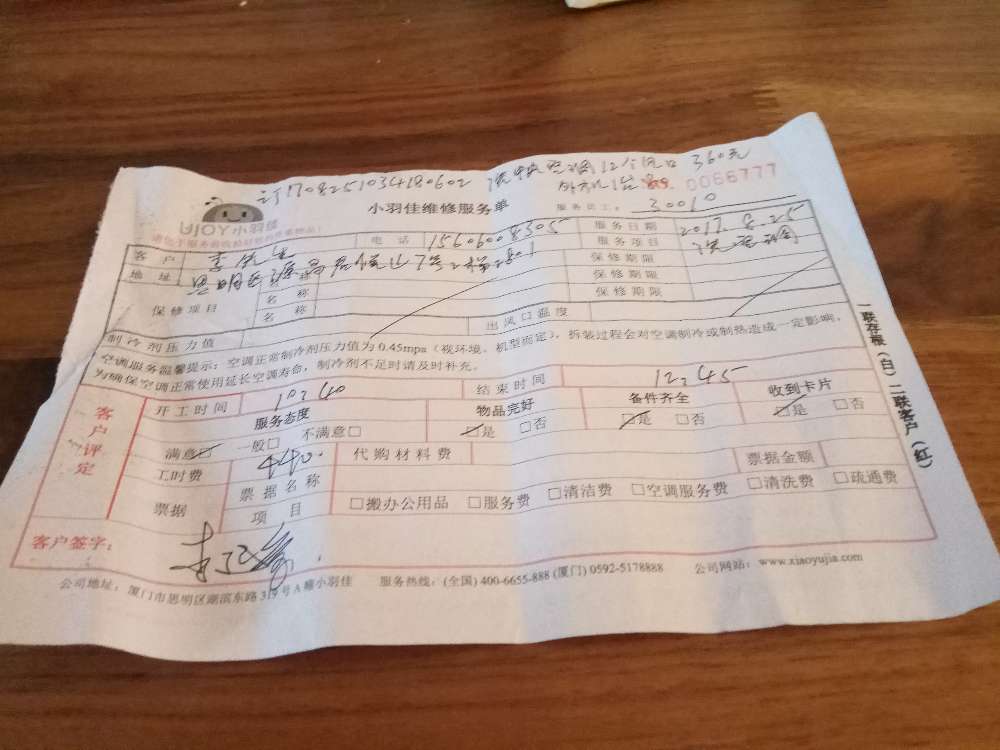 订1708251034180602 洗中央空调12个风口 360元
外机1台 80 No. 0066777
UJOY小羽佳
小羽佳维修服务单
服务员工: 30010
客户 李先生 电话 15606008305 服务日期 2017.8.25
地址 思明区 服务项目 洗空调
保修项目 名称 保修期限
名称 保修期限
名称 保修期限
制冷剂压力值 出风口温度
空调服务温馨提示:空调正常制冷剂压力值为0.45mpa(视环境、机型而定),拆装过程会对空调制冷或制热造成一定影响,
为确保空调正常使用延长空调寿命,制冷剂不足时请及时补充。
客户评定
开工时间 10:40 结束时间 12:45
服务态度 物品完好 备件齐全 收到卡片
满意☑ 一般□ 不满意□ ☑是 □否 ☑是 □否 ☑是 □否
工时费 440. 代购材料费
票据 票据名称 票据金额
项目 □搬办公用品 □服务费 □清洁费 □空调服务费 □清洗费 □疏通费
客户签字:
公司地址:厦门市思明区湖滨东路319号A幢小羽佳 服务热线:(全国)400-6655-888 (厦门)0592-5178888 公司网站:www.xiaoyujia.com
一联存根(白)二联客户(红)